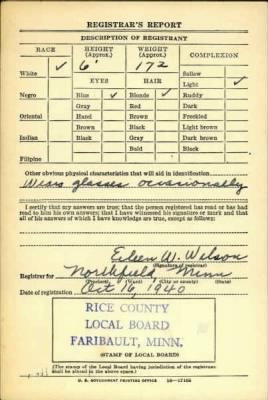 REGISTRAR'S REPORT
DESCRIPTION OF REGISTRANT
RACE HEIGHT (Approx.) WEIGHT (Approx.) COMPLEXION
White ✓ 6' 172 Sallow
EYES HAIR Light ✓
Negro Blue ✓ Blonde ✓ Ruddy
Gray Red Dark
Oriental Hazel Brown Freckled
Brown Black Light brown
Indian Black Gray Dark brown
Bald Black
Filipino
Other obvious physical characteristics that will aid in identification
Wears glasses occasionally
I certify that my answers are true; that the person registered has read or has had
read to him his own answers; that I have witnessed his signature or mark and that
all of his answers of which I have knowledge are true, except as follows:
Eileen W. Wilson
(Signature of registrar)
Registrar for Northfield Minn
(Precinct) (Ward) (City or county) (State)
Date of registration Oct 16, 1940
RICE COUNTY
LOCAL BOARD
FARIBAULT, MINN.
(STAMP OF LOCAL BOARD)
(The stamp of the Local Board having jurisdiction of the registrant
shall be placed in the above space.)
U. S. GOVERNMENT PRINTING OFFICE 16-17105